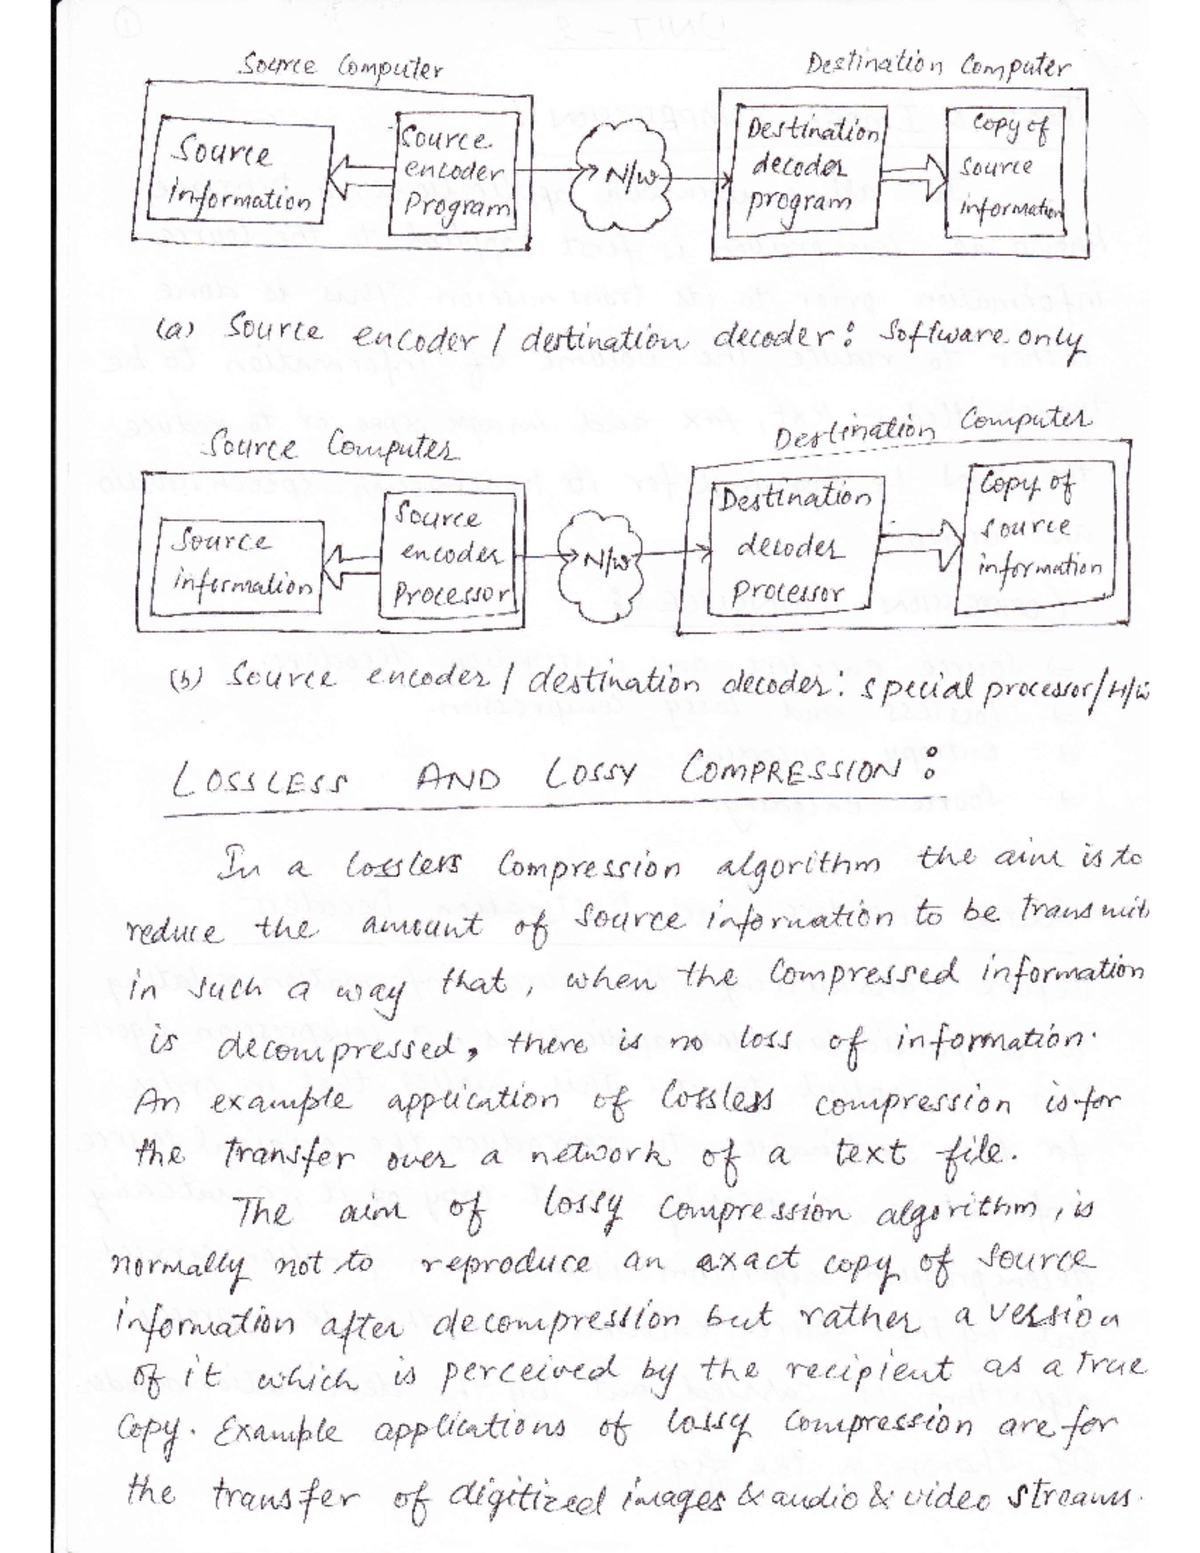 Source Computer
Destination Computer
Source
information
Source
encoder
program
N/w
Destination
decoder
program
Copy of
source
information
(a) Source encoder / destination decoder : Software only
Source Computer
Destination Computer
Source
information
Source
encoder
Processor
N/w
Destination
decoder
Processor
Copy of
source
information
(b) Source encoder / destination decoder : special processor/H/w
LOSSLESS AND LOSSY COMPRESSION :
In a lossless compression algorithm the aim is to
reduce the amount of source information to be transmit
in such a way that, when the compressed information
is decompressed, there is no loss of information.
An example application of lossless compression is for
the transfer over a network of a text file.
The aim of lossy compression algorithm, is
normally not to reproduce an exact copy of source
information after decompression but rather a version
of it which is perceived by the recipient as a true
copy. Example applications of lossy compression are for
the transfer of digitized images & audio & video streams.